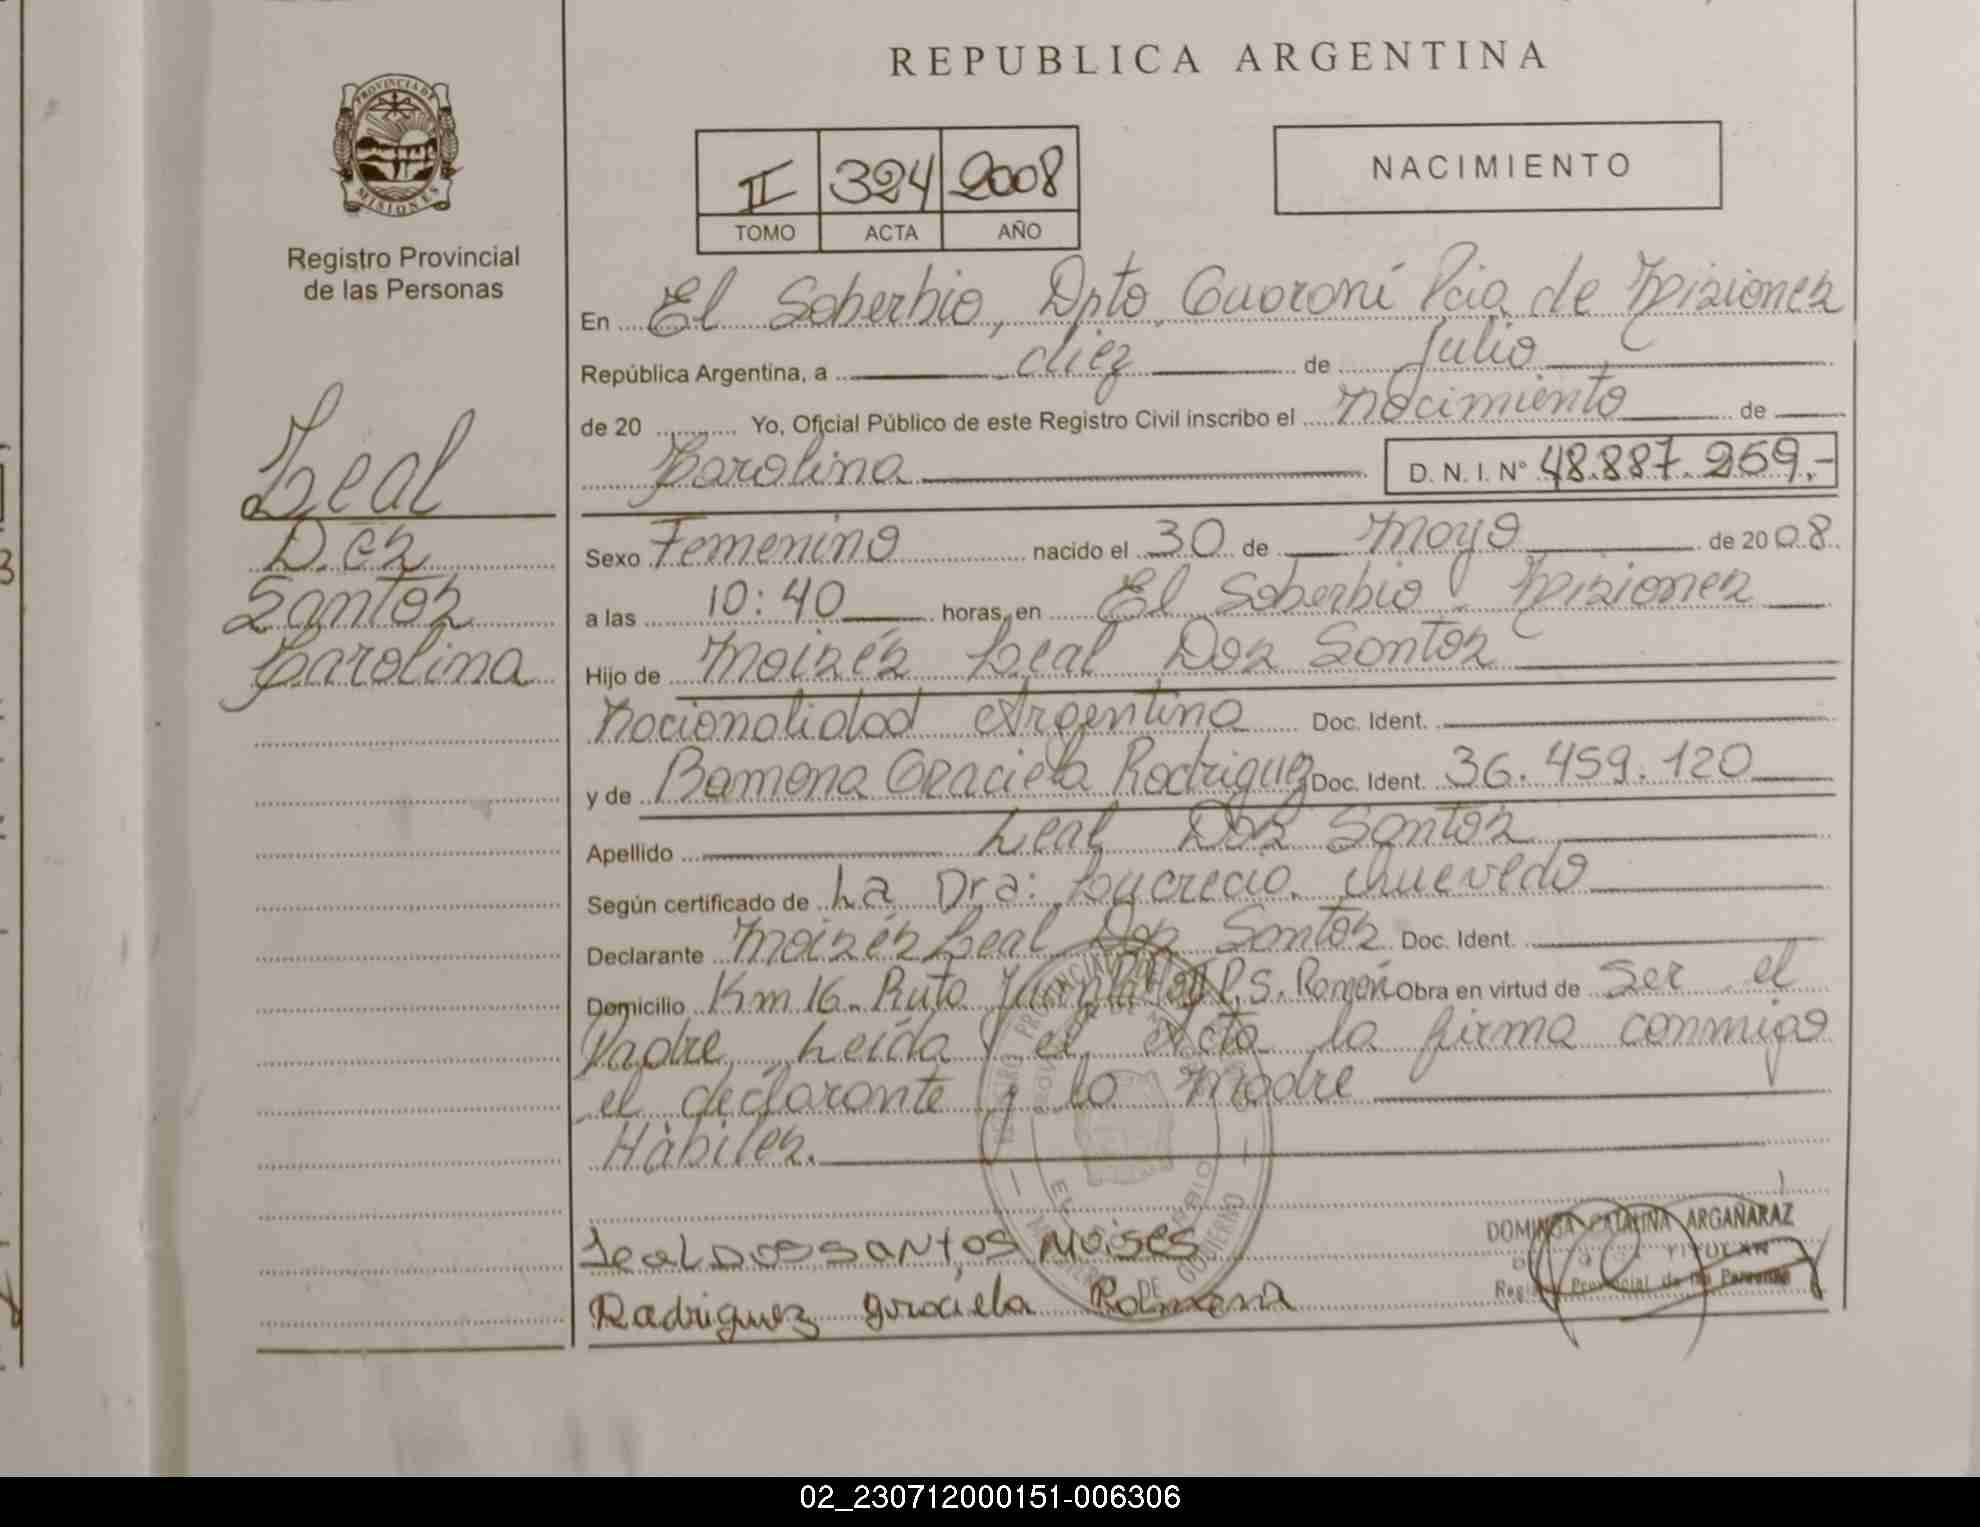 REPUBLICA ARGENTINA
PROVINCIA DE MISIONES
Registro Provincial
de las Personas
II 324 2008
TOMO ACTA AÑO
NACIMIENTO
En El Soberbio, Dpto. Guaraní Pcia de Misiones
República Argentina, a diez de Julio
de 20 Yo, Oficial Público de este Registro Civil inscribo el nacimiento de
Carolina D. N. I. N° 48.887.259.-
Leal
Dos
Santos
Carolina
Sexo Femenino nacido el 30 de Mayo de 2008
a las 10:40 horas, en El Soberbio - Misiones
Hijo de Moisés Leal Dos Santos
nacionalidad Argentina Doc. Ident.
y de Ramona Graciela Rodriguez Doc. Ident. 36.459.120
Apellido Leal Dos Santos
Según certificado de La Dra: Lucrecia Quevedo
Declarante Moisés Leal Dos Santos Doc. Ident.
Domicilio Km 16. Ruta P.S. Ramón Obra en virtud de Ser el
Padre Leída el Acta la firma conmigo
el declarante y la Madre
Hábiles.
Leal Dos santos Moises
Radriguez graciela Romana
DOMINGA CATALINA ARGAÑARAZ
TITULAR
Registro Provincial de las Personas
02_230712000151-006306